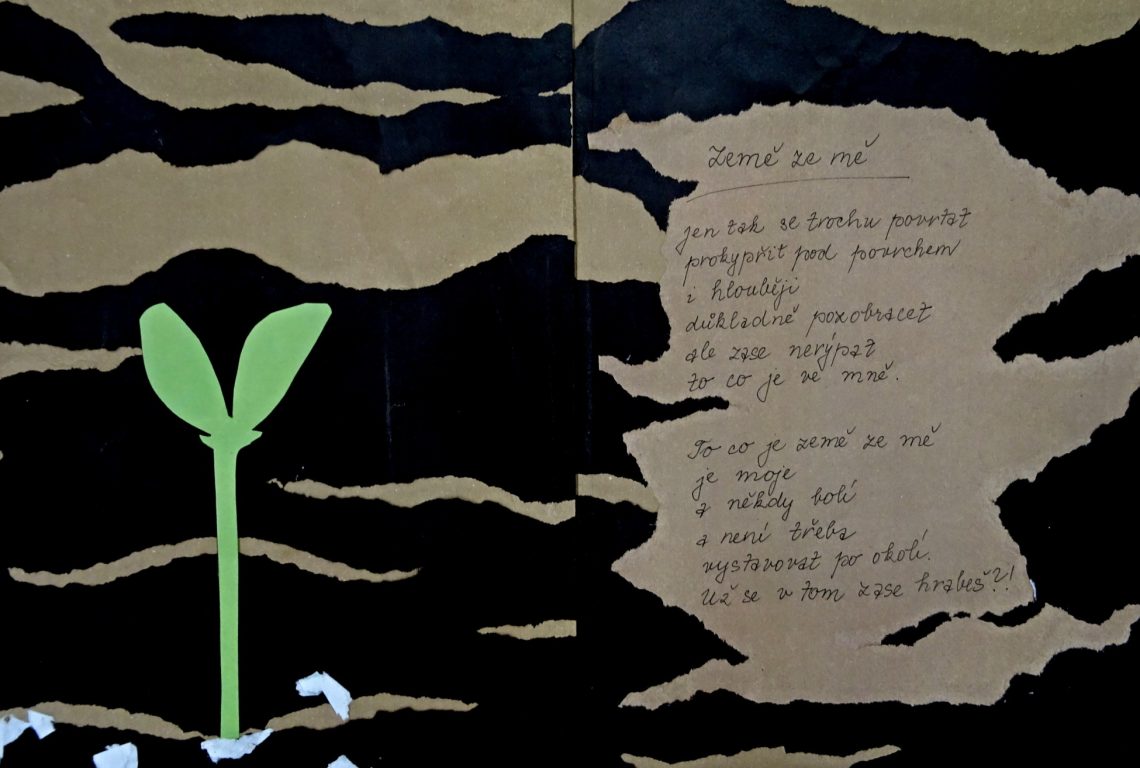 Země ze mě
jen tak se trochu povrtat
prokypřit pod povrchem
i hlouběji
důkladně poxobracet
ale zase nerýpat
to co je ve mně.
To co je země ze mě
je moje
a někdy bolí
a není třeba
vystavovat po okolí.
Už se v tom zase hrabeš?!